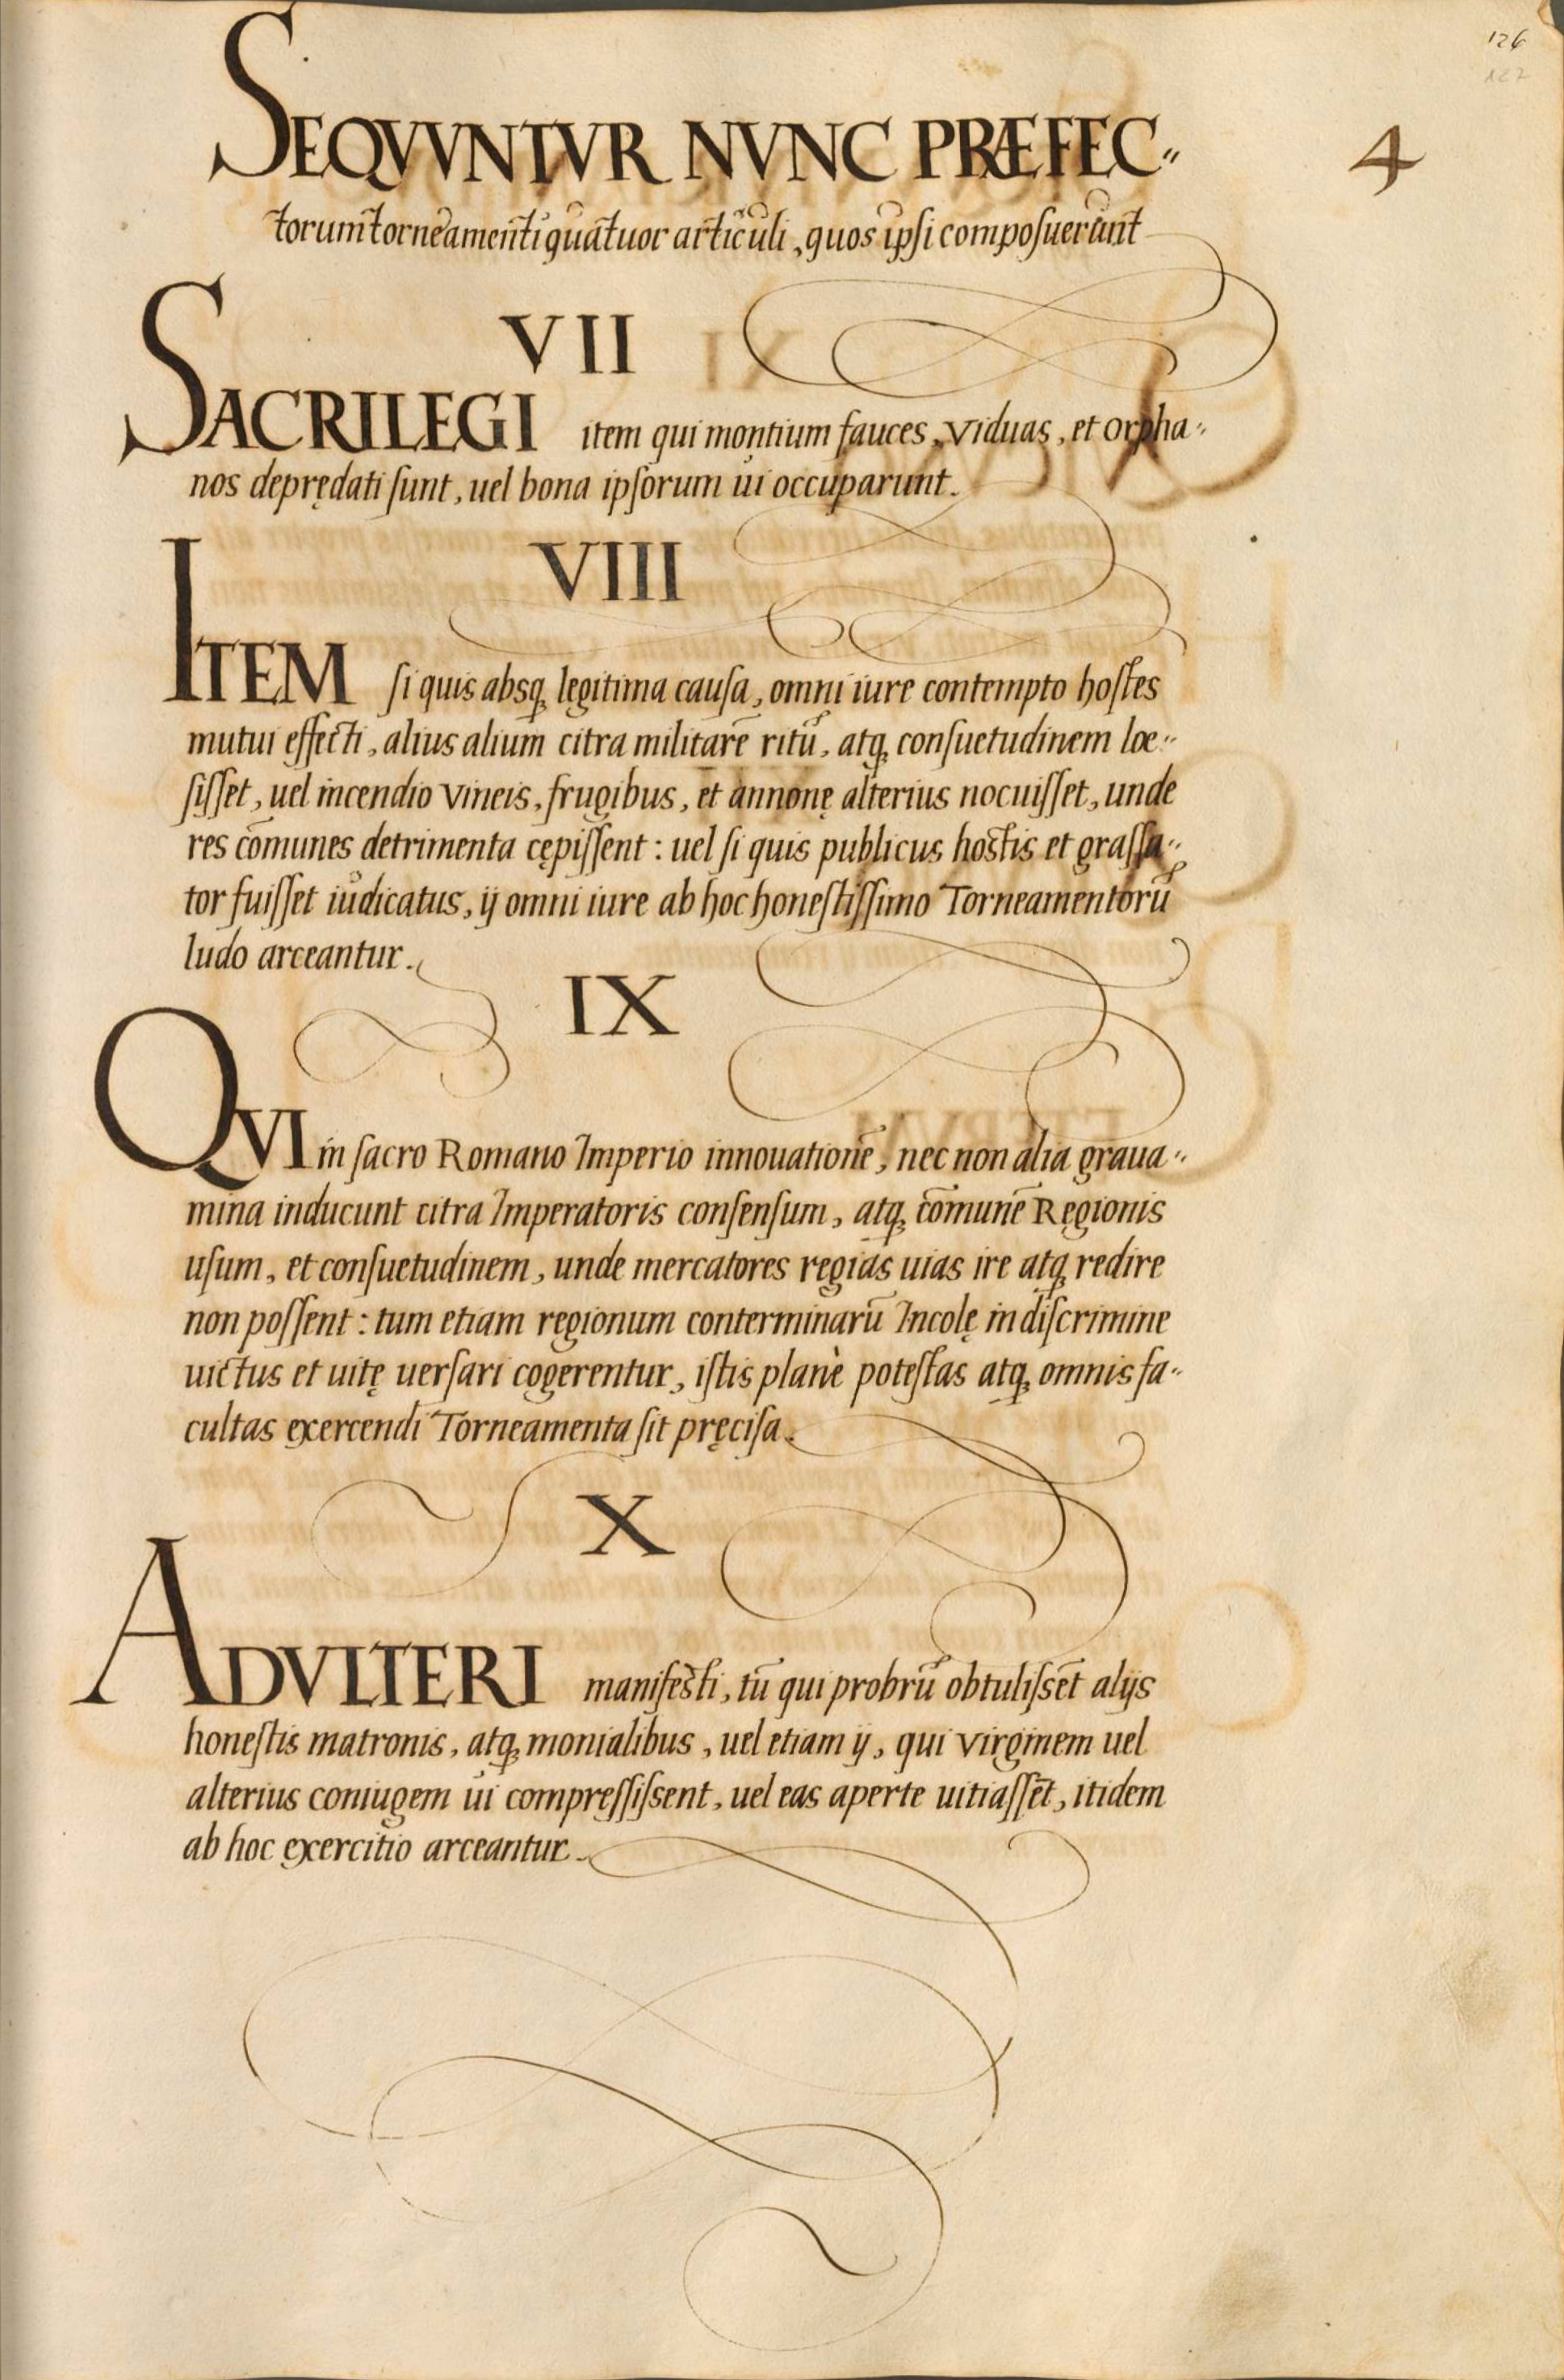 126
127
4
SEQVVNTVR NVNC PRÆFEC〃
torum torneamenti quatuor articuli, quos ipsi composuerunt
VII
SACRILEGI item qui montium fauces, viduas, et orpha〃
nos depredati ſunt, uel bona ipſorum ui occuparunt.
VIII
ITEM ſi quis absq; legitima cauſa, omni iure contempto hoſtes
mutui effecti, alius alium citra militarē ritū, atq; conſuetudinem loe〃
ſiſſet, uel incendio vineis, frugibus, et annonę alterius nocuiſſet, unde
res cōmunes detrimenta cępiſſent: uel ſi quis publicus hoſtis et graſſa〃
tor fuiſſet iudicatus, ij omni iure ab hoc honeſtiſſimo Torneamentorū
ludo arceantur.
IX
QVI in ſacro Romano Imperio innouationē, nec non alia graua〃
mina inducunt citra Imperatoris conſenſum, atq; cōmunē Regionis
uſum, et conſuetudinem, unde mercatores regias uias ire atq; redire
non poſſent: tum etiam regionum conterminarū Incolę in diſcrimine
uictus et uitę uerſari cogerentur, iſtis planè poteſtas atq; omnis fa〃
cultas exercendi Torneamenta ſit pręciſa.
X
ADVLTERI manifeſti, tū qui probrū obtuliſsēt alijs
honeſtis matronis, atq; monialibus, uel etiam ij, qui virginem uel
alterius coniugem ui compreſſiſsent, uel eas aperte uitiaſſēt, itidem
ab hoc exercitio arceantur.